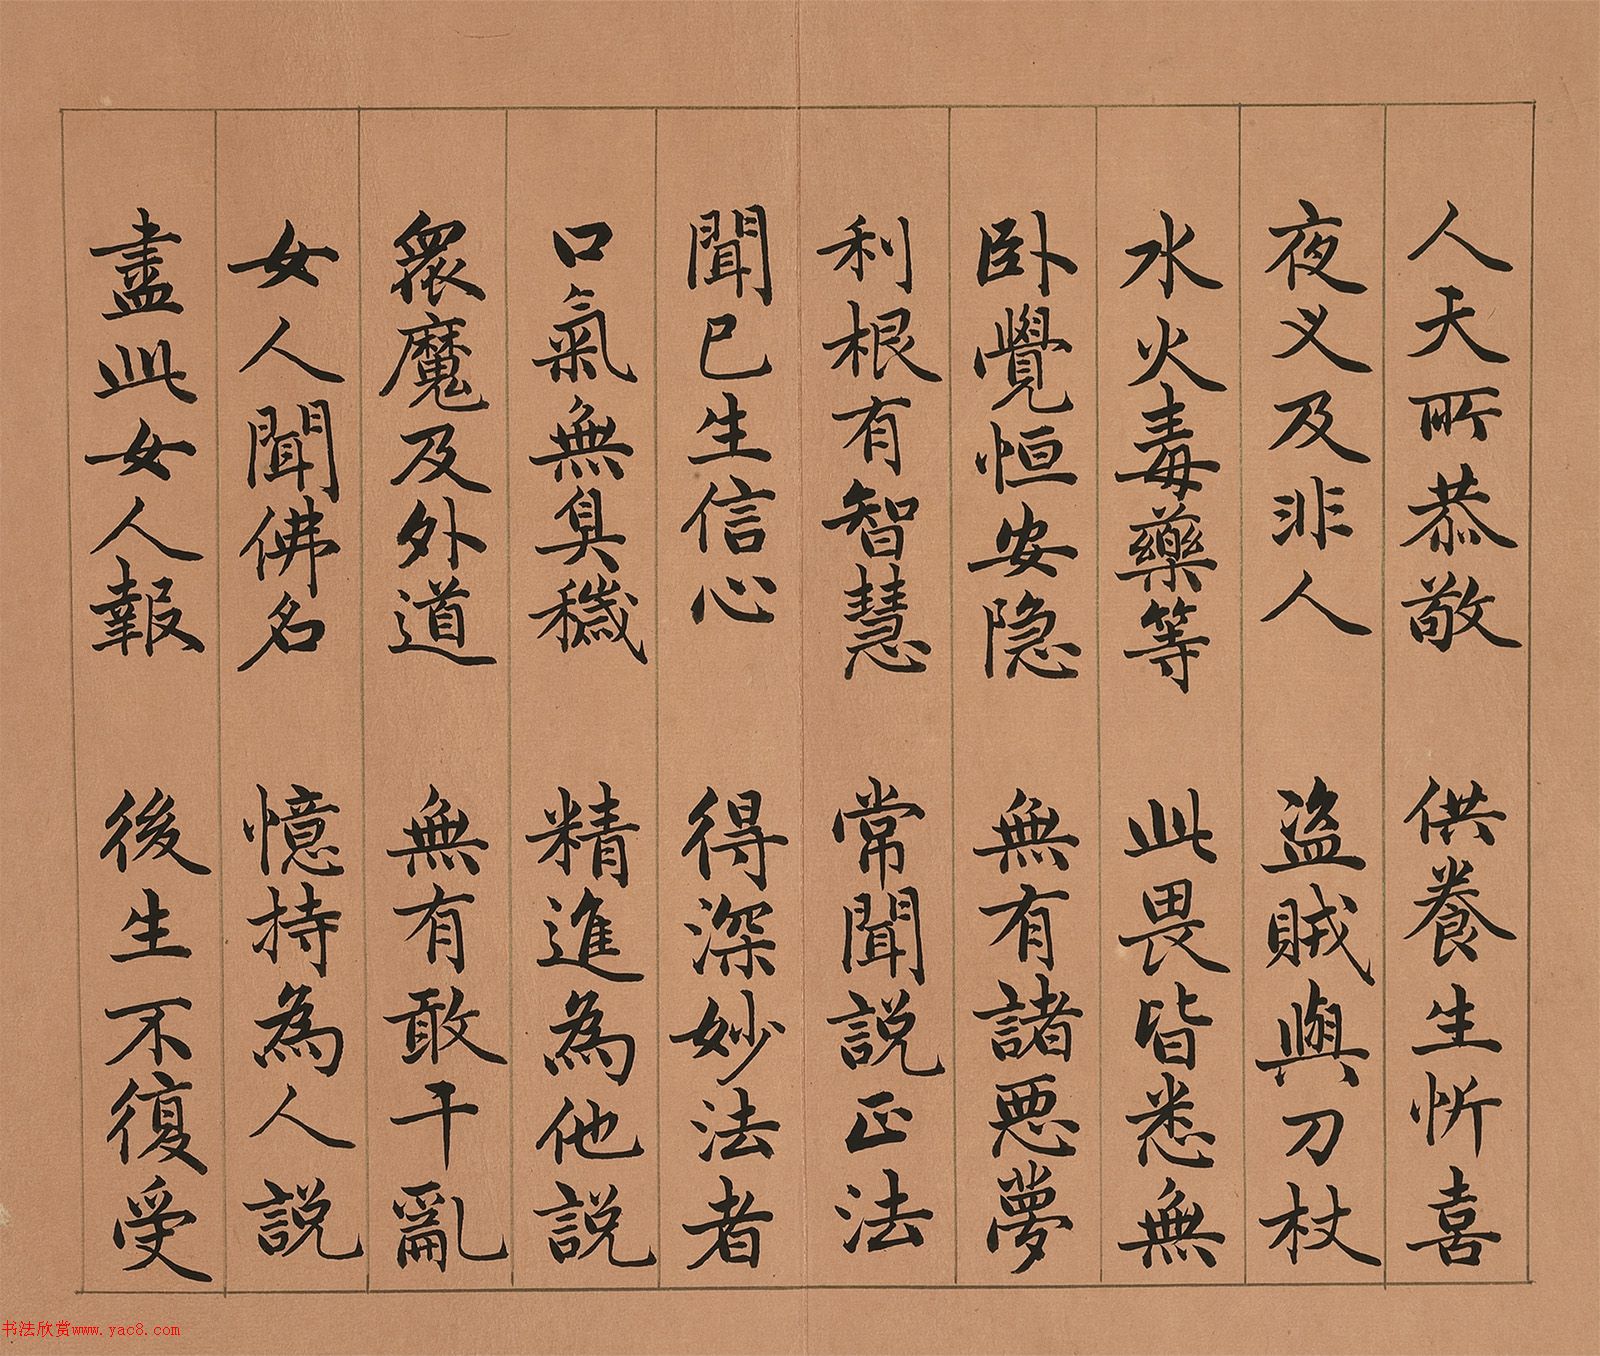 人天所恭敬 供養生忻喜
夜叉及非人 盜賊與刀杖
水火毒藥等 此畏皆悉無
卧覺恒安隐 無有諸惡夢
利根有智慧 常聞説正法
聞已生信心 得深妙法者
口氣無臭穢 精進為他説
衆魔及外道 無有敢干亂
女人聞佛名 憶持為人説
盡此女人報 後生不復受
书法欣赏www.yac8.com